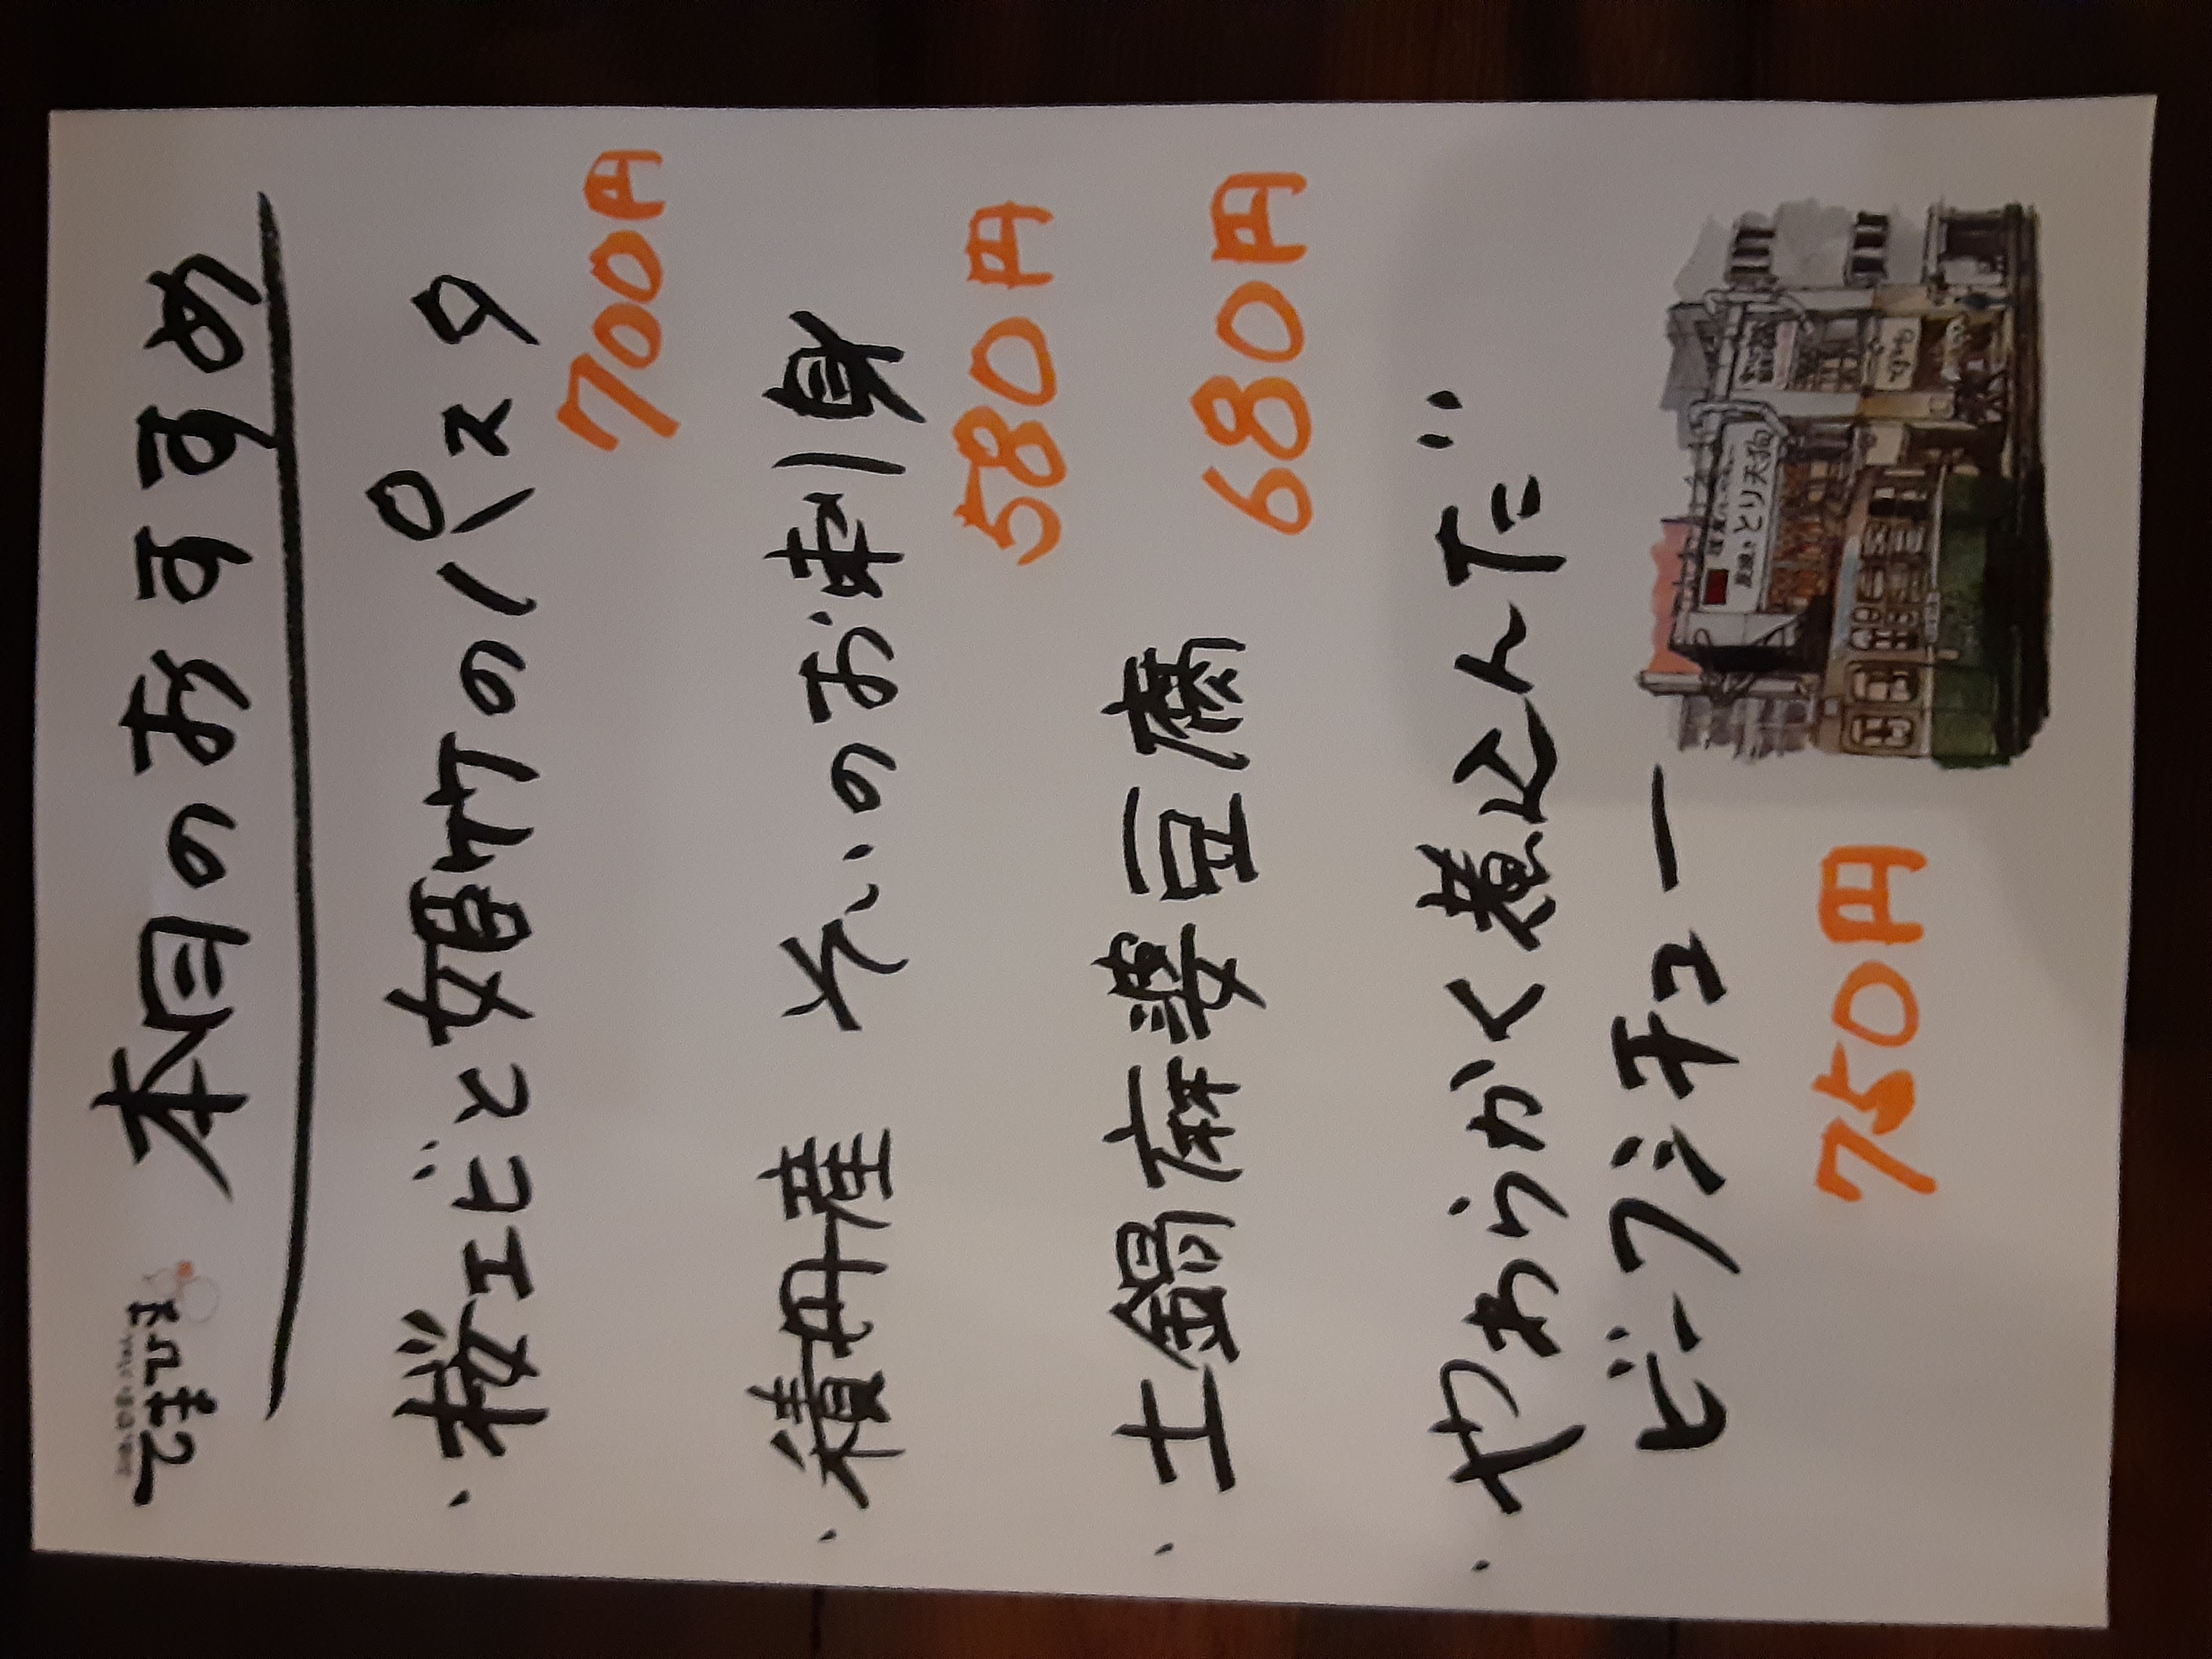 本日のおすすめ
・桜エビと姫竹のパスタ
700円
・積丹産 そいのお刺身
580円
・土鍋麻婆豆腐
680円
・やわらかく煮込んだ
ビーフシチュー
750円
とり天狗